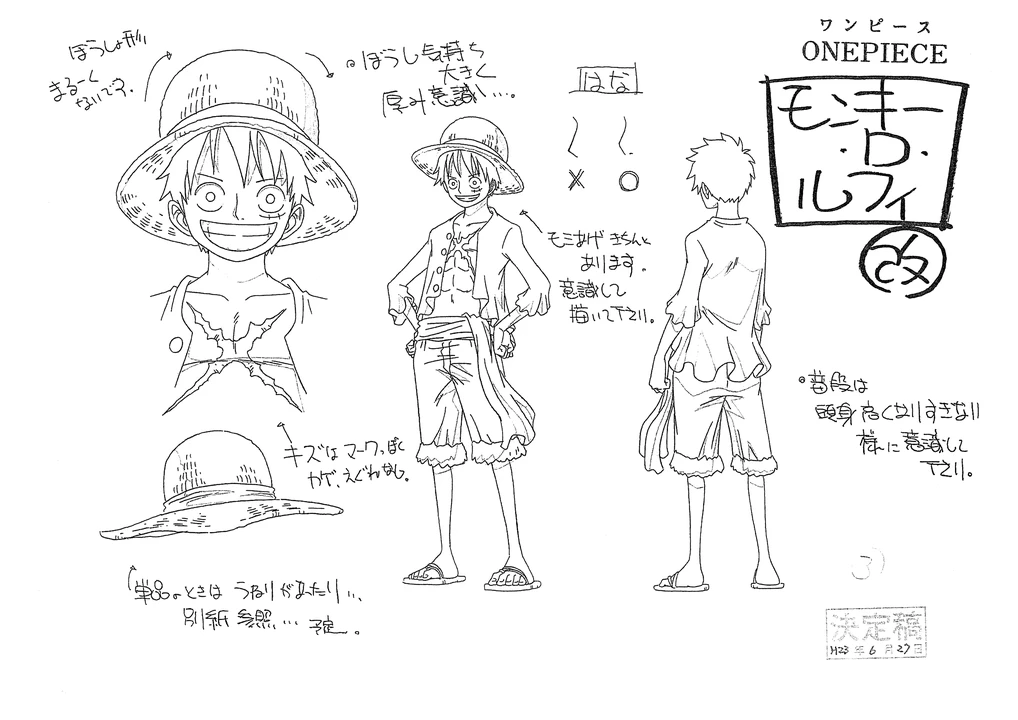 ワンピース
ONEPIECE
モンキー
・D・
ルフィ
改
ぼうしょ形い
まるーく
ないです。
ぼうし気持ち
大きく
厚み意識し…。
はな
モミあげ きちんと
あります。
意識して
描いて下さい。
普段は
頭身高くなりすぎない
様に意識して
下さい。
キズは マークっぽく
カゲ、えぐれなし。
単品のときは うねりがあったり…、
別紙 参照… 予定。
3
決定稿
H23年6月27日